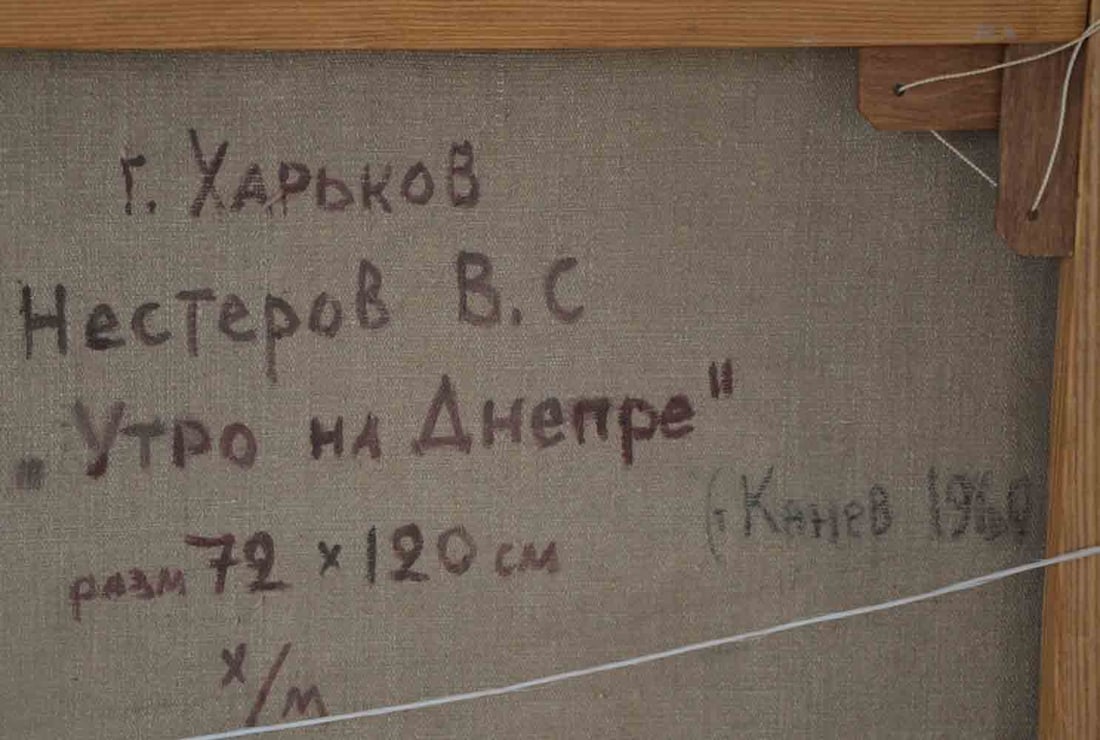 г. Харьков
Нестеров В. С
„Утро на Днепре"
(г Канев 1960
разм 72 x 120 см
х/м